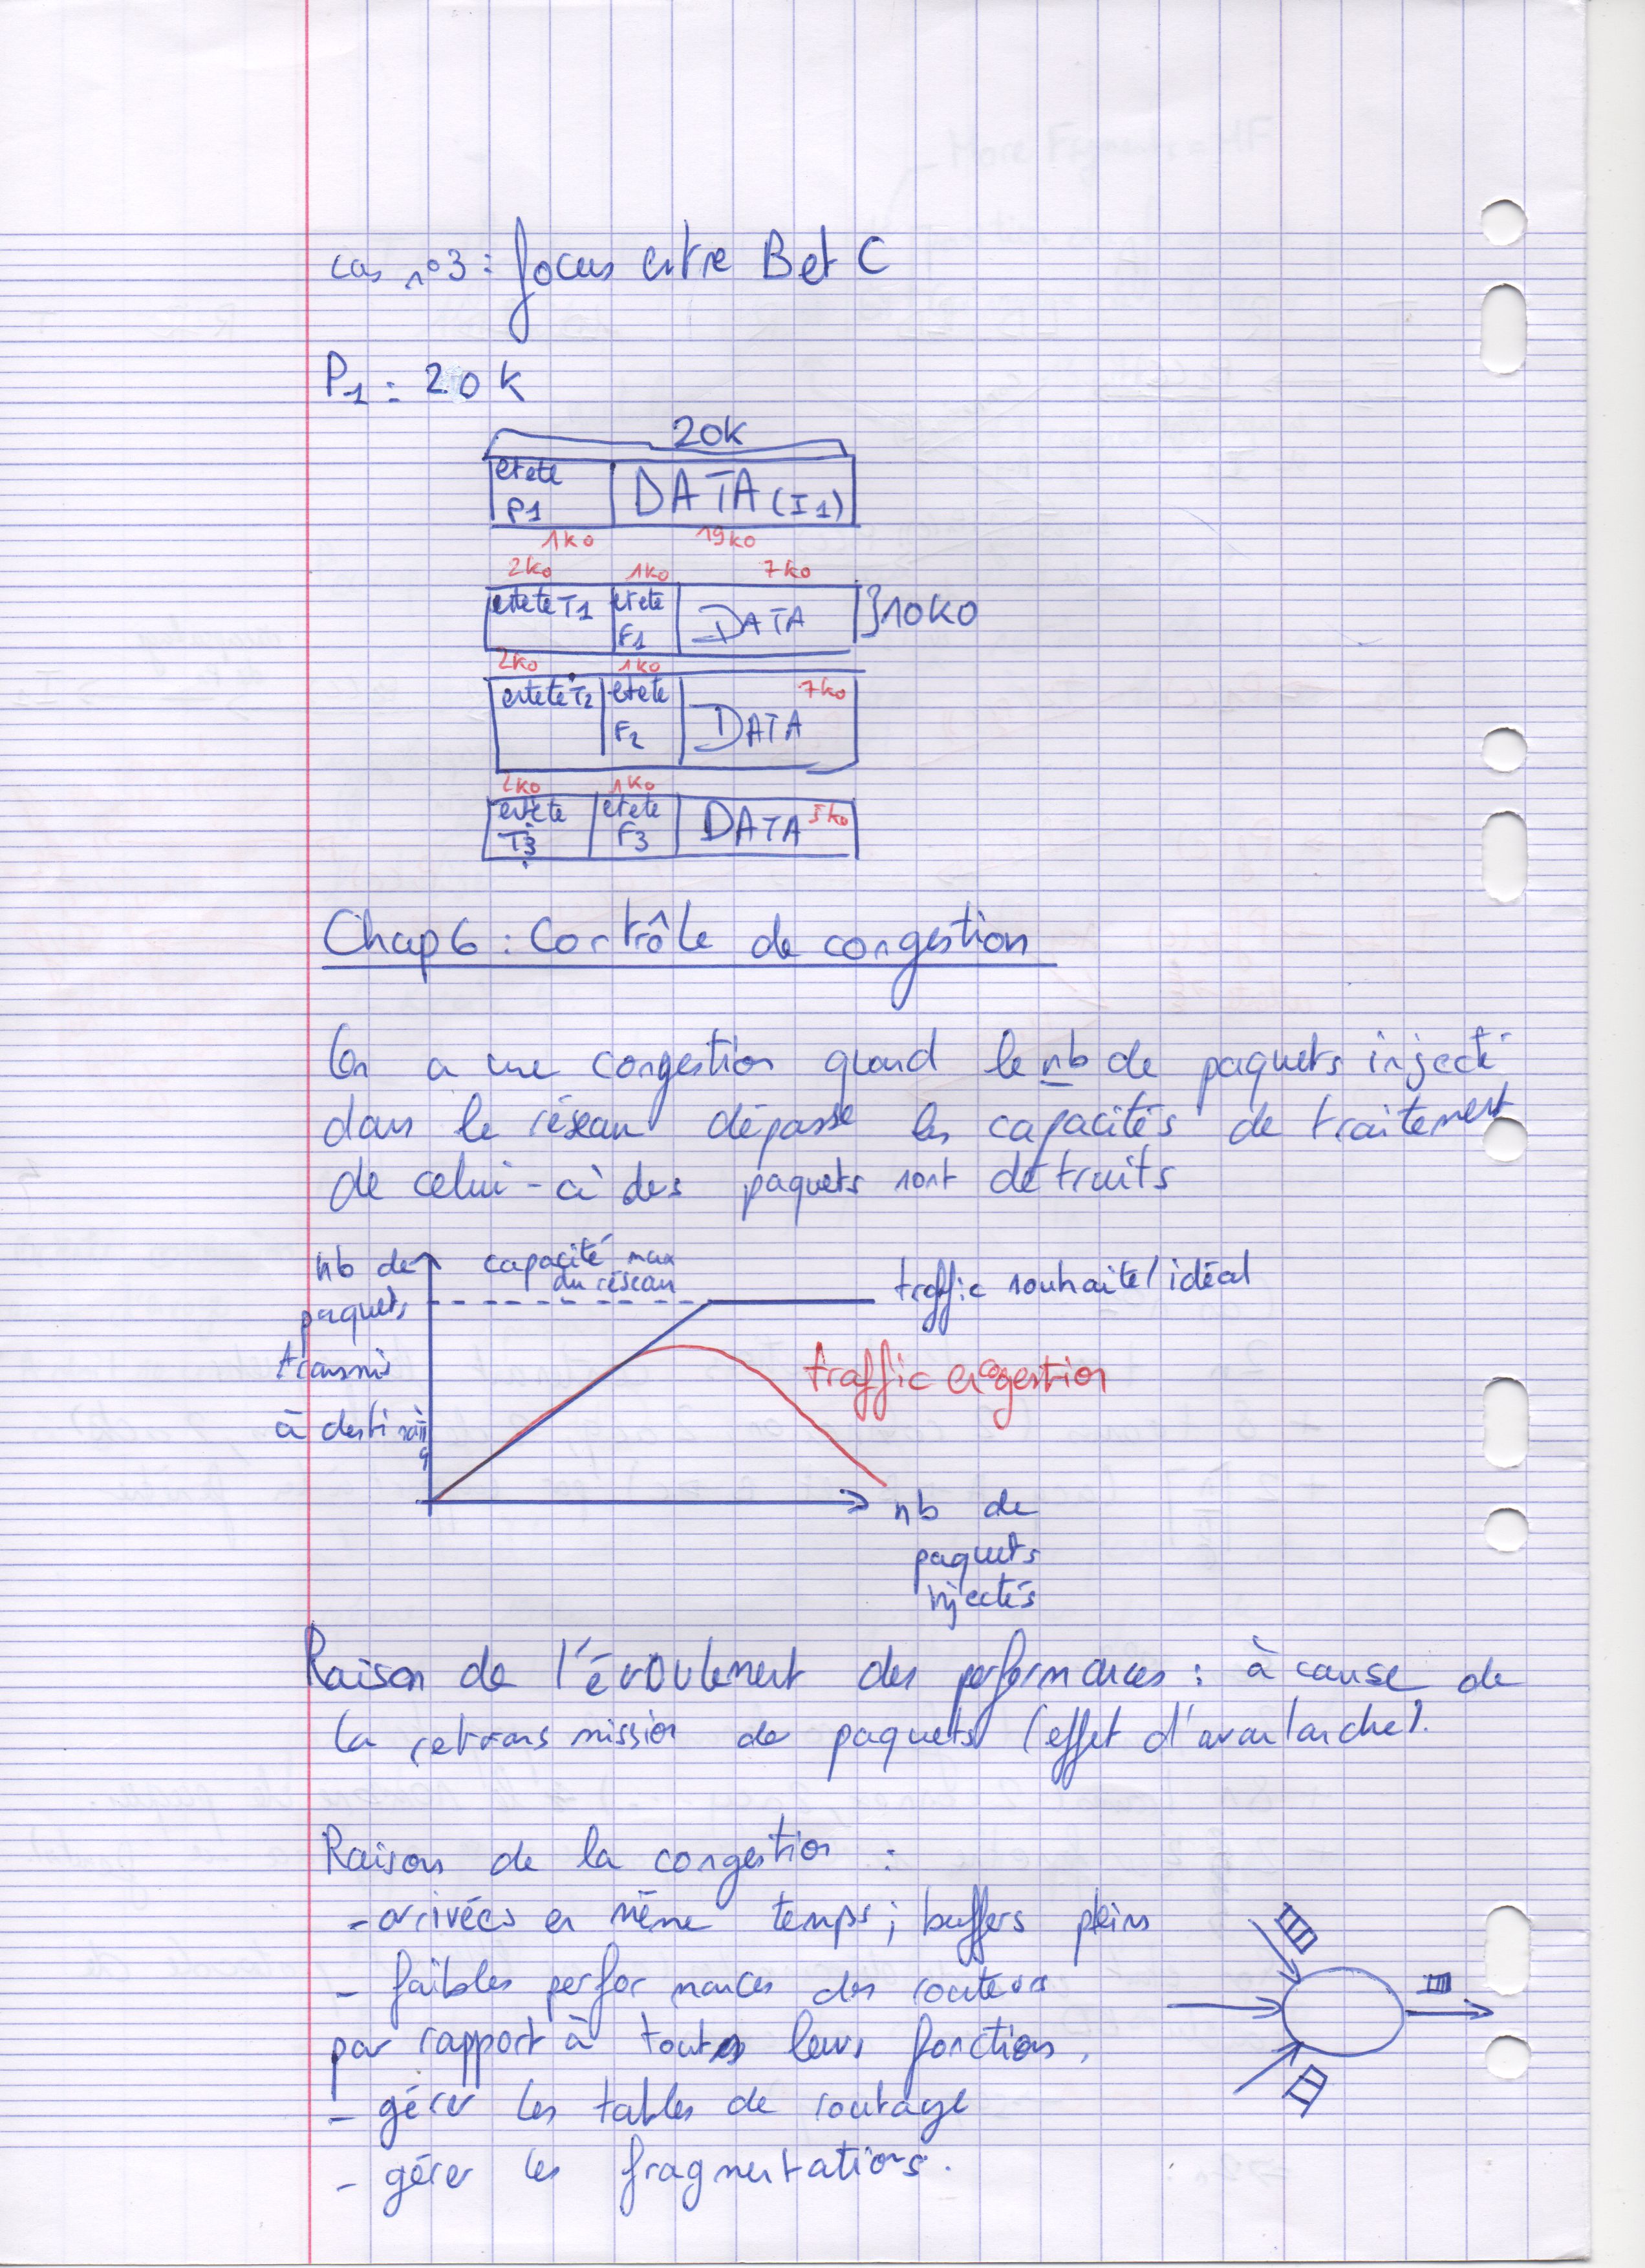 cas n°3 : focus entre B et C
P1 : 20 K
20K
entete P1 DATA (I1)
1ko 19ko
2ko 1ko 7ko
entete T1 entete F1 DATA }10KO
2ko 1ko
entete T2 entete F2 DATA 7ko
2ko 1ko
entete T3 entete F3 DATA 5ko
Chap 6 : Contrôle de congestion
On a une congestion quand le nb de paquets injecté
dans le réseau dépasse les capacités de traitement
de celui-ci des paquets sont détruits
nb de paquets transmis à destination
capacité max
du réseau
traffic souhaité/idéal
traffic congestion
nb de
paquets
injectés
Raison de l'éroulement des performances : à cause de
la retransmission de paquets (effet d'avanlanche).
Raison de la congestion :
- arrivées en même temps ; buffers pleins
- faibles performances des routeurs
par rapport à toutes leurs fonctions.
- gérer les tables de routage
- gérer les fragmentations.